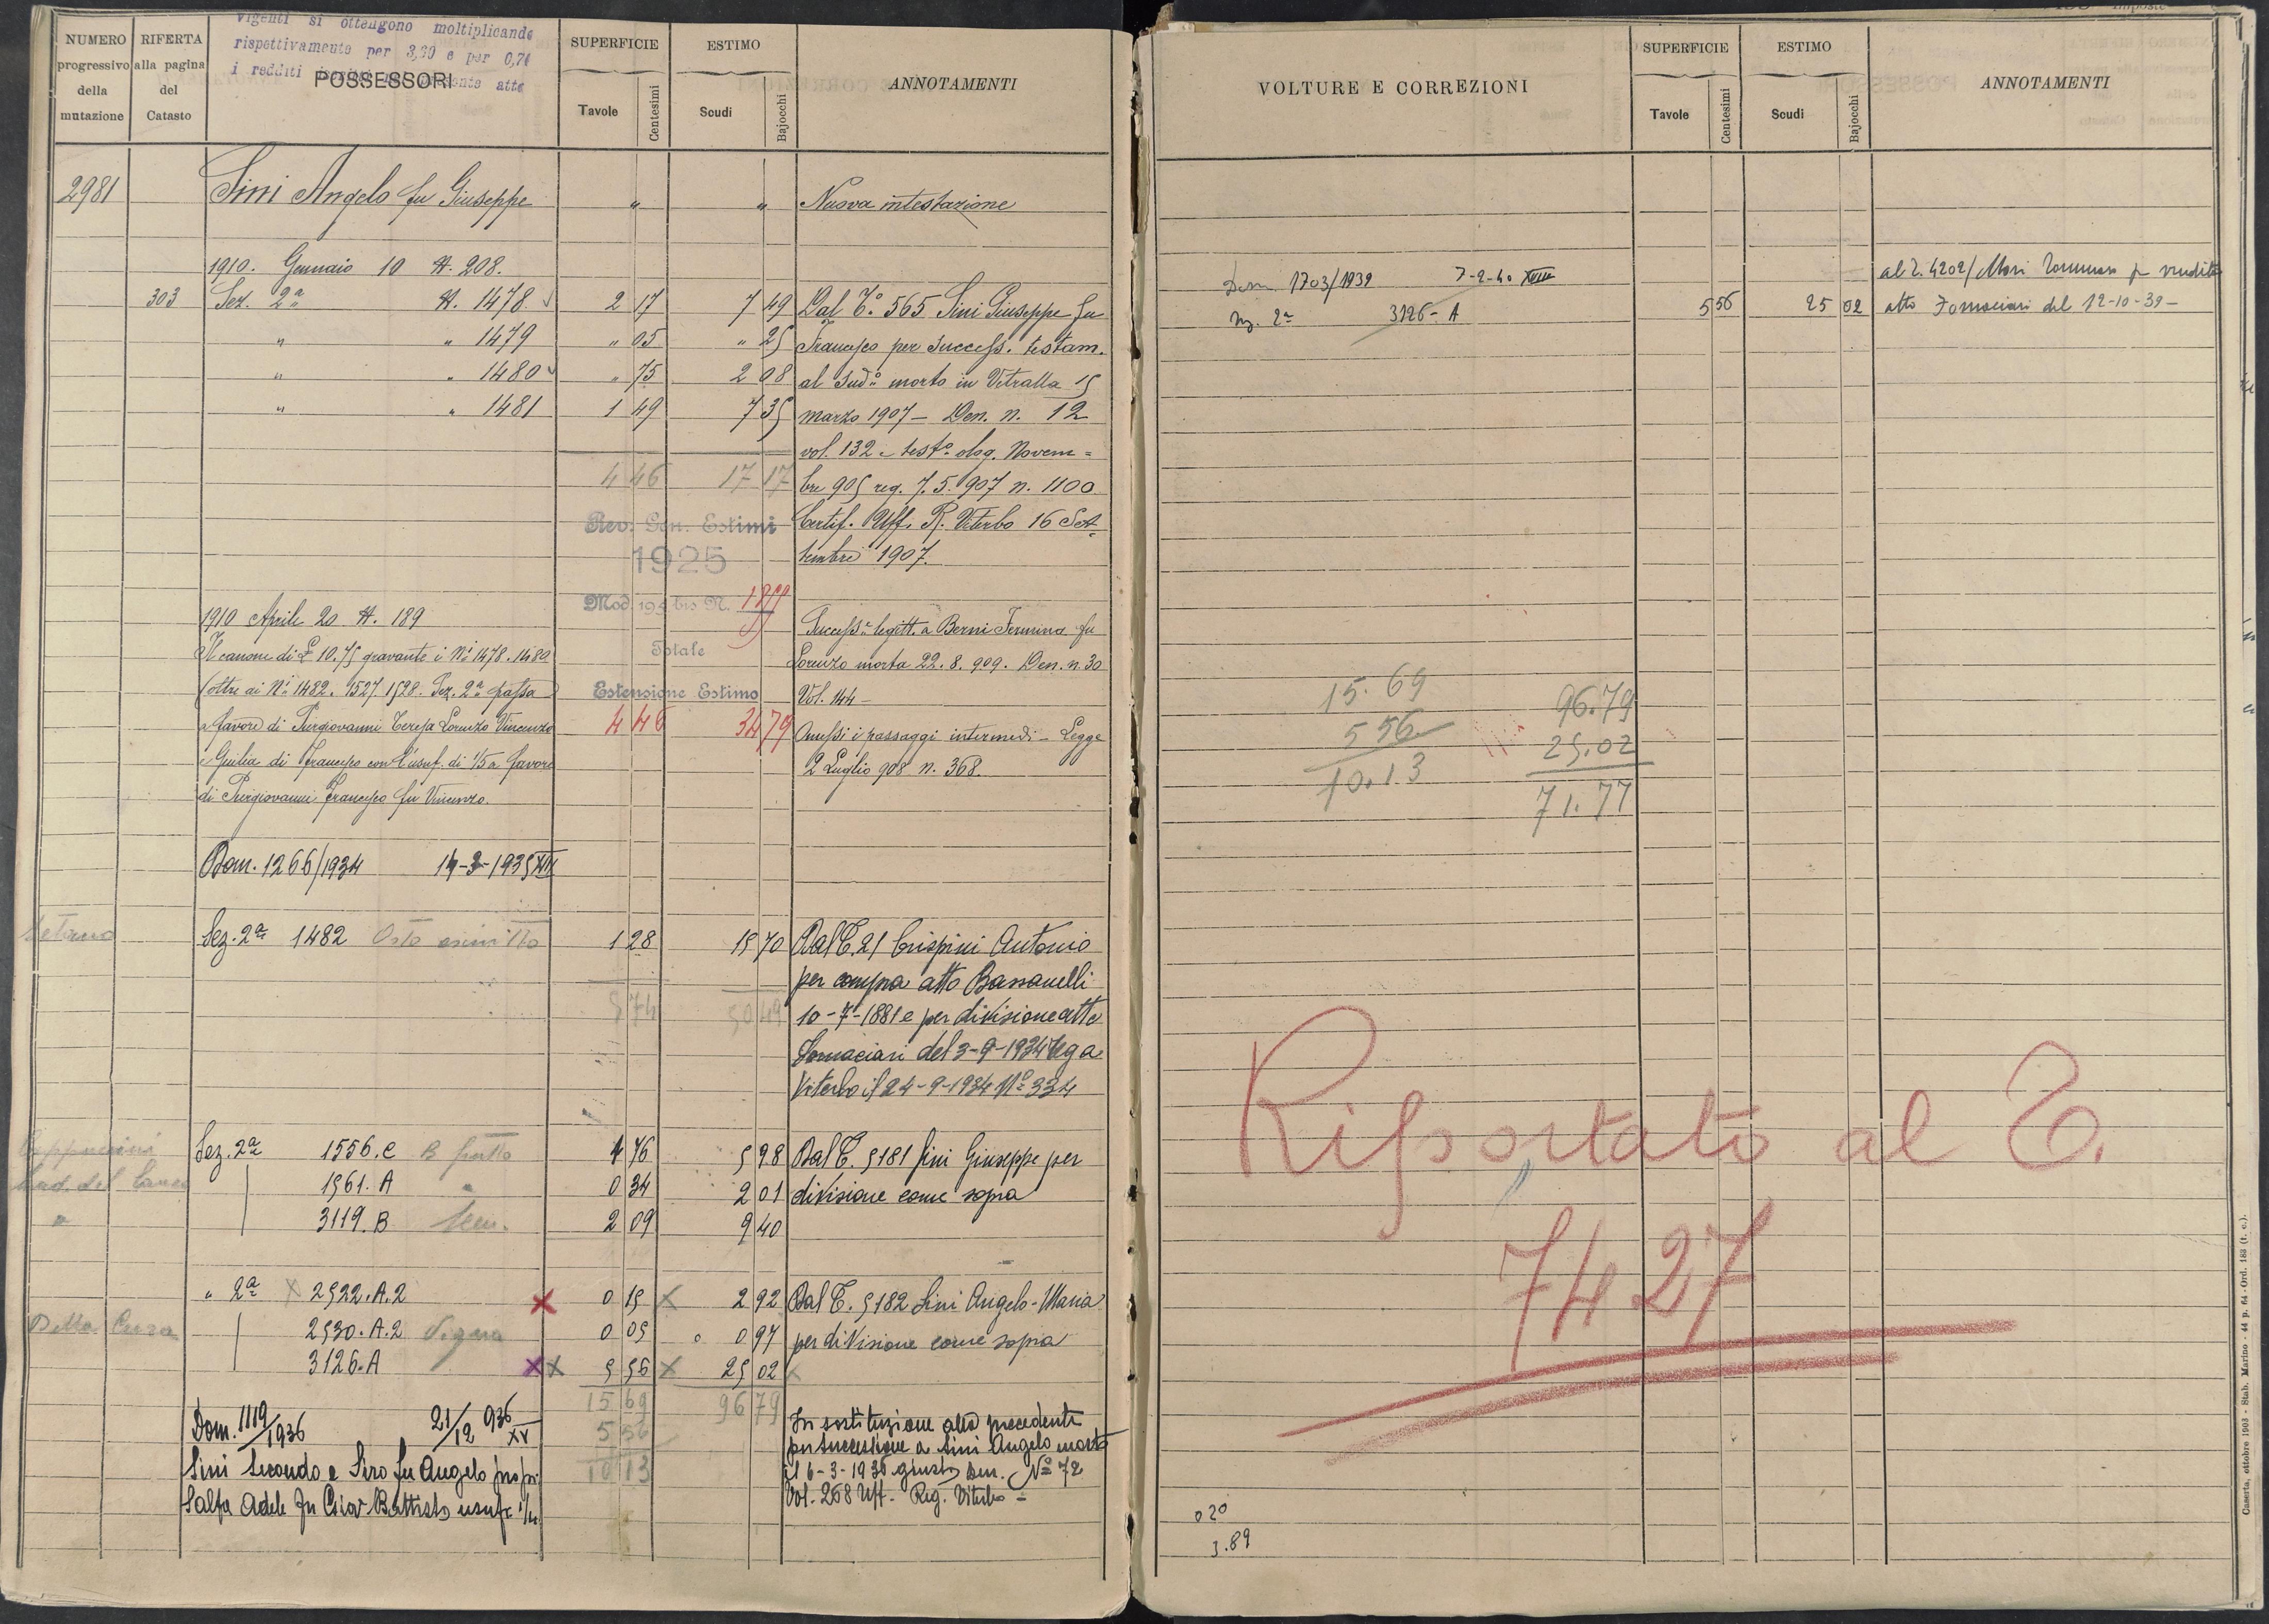 vigenti si ottengono moltiplicando
rispettivamente per 3,30 e per 0,74
i redditi presente atto
NUMERO progressivo della mutazione
RIFERTA alla pagina del Catasto
POSSESSORI
SUPERFICIE
Tavole Centesimi
ESTIMO
Scudi Bajocchi
ANNOTAMENTI
2981 Sini Angelo fu Giuseppe " " Nuova intestazione
1910. Gennaio 10 N. 208.
303 Sez. 2a N. 1478 2 17 7 49 Dal T.o 565 Sini Giuseppe fu
" " 1479 " 05 " 25 Francesco per success. testam.
" " 1480 " 75 2 08 al sud.o morto in Vetralla 15
" " 1481 1 49 7 35 marzo 1907 - Den. n. 12
vol. 132 e test.o olog. Novem=
4 46 17 17 bre 905 reg. 7.5.907 n. 1100
Rev. Gen. Estimi Certif. Uff. R. Viterbo 16 Set
1925 tembre 1907.
Mod. 19 bis N.
1910 Aprile 20 N. 189 Success.e legitt. a Berni Fermina fu
Il canone di £ 10.75 gravante i N.i 1478. 1480 Totale Lorenzo morta 22.8.909. Den. n. 30
(oltre ai N.i 1482. 1527. 1528. Sez. 2a passa Estensione Estimo Vol. 144 -
a favore di Piergiovanni Teresa Lorenzo Vincenzo 4 46 34 79 Omessi i passaggi intermedi - Legge
e Giulia di Francesco con l'usuf. di 1/5 a favore 2 Luglio 908 n. 368.
di Piergiovanni Francesco fu Vincenzo.
Dom. 1266/1934 14-3-1935 XIII
Sez. 2a 1482 Orto asciutto 1 28 15 70 Dal T. 21 Crispini Antonio
per compra atto Bassanelli
5 74 50 49 10-7-1881 e per divisione atto
Fornaciari del 3-9-1934 Reg a
Viterbo il 24-9-1934 N.o 334
Cappuccini Sez. 2a 1556.C B. frutto 4 76 5 98 Dal T. 5181 Sini Giuseppe per
1561.A " 0 34 2 01 divisione come sopra
" 3119.B Sem. 2 09 9 40
" 2a x 2522.A.2 x 0 15 x 2 92 Dal T. 5182 Sini Angelo-Maria
Della Cura 2530.A.2 Vigna 0 05 0 97 per divisione come sopra
3126.A xx 5 56 x 25 02 x
15 69 96 79
Dom. 1119/1936 21/12 936 XV 5 56 In sostituzione alla precedente
per successione a Sini Angelo morto
Sini Secondo e Siro fu Angelo propr. 10 13 il 6-3-1936 giusta Den. N.o 72
Salfa Adele fu Giov Battista usufr. 1/4 Vol. 268 Uff. Reg. Viterbo =
VOLTURE E CORREZIONI
SUPERFICIE
Tavole Centesimi
ESTIMO
Scudi Bajocchi
ANNOTAMENTI
Dom. 1703/1939 7-2-40 XVIII al T. 4202/ Mori Tommaso p vendita
Sez. 2a 3126-A 5 56 25 02 atto Fornaciari del 12-10-39 -
15.69 96.79
5 56 25.02
10.13 71.77
Riportato al T.
7427
0 20
3.89
Caserta, ottobre 1903 - Stab. Marino - 44 p. 64 - Ord. 183 (t. c.).